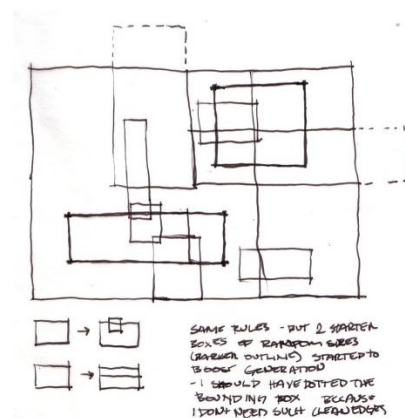 SAME RULES - BUT 2 STARTER
BOXES OF RANDOM SIZES
(DARKER OUTLINE) STARTED TO
BOOST GENERATION
- I SHOULD HAVE DOTTED THE
BOUNDING BOX BECAUSE
I DON'T NEED SUCH CLEAN EDGES